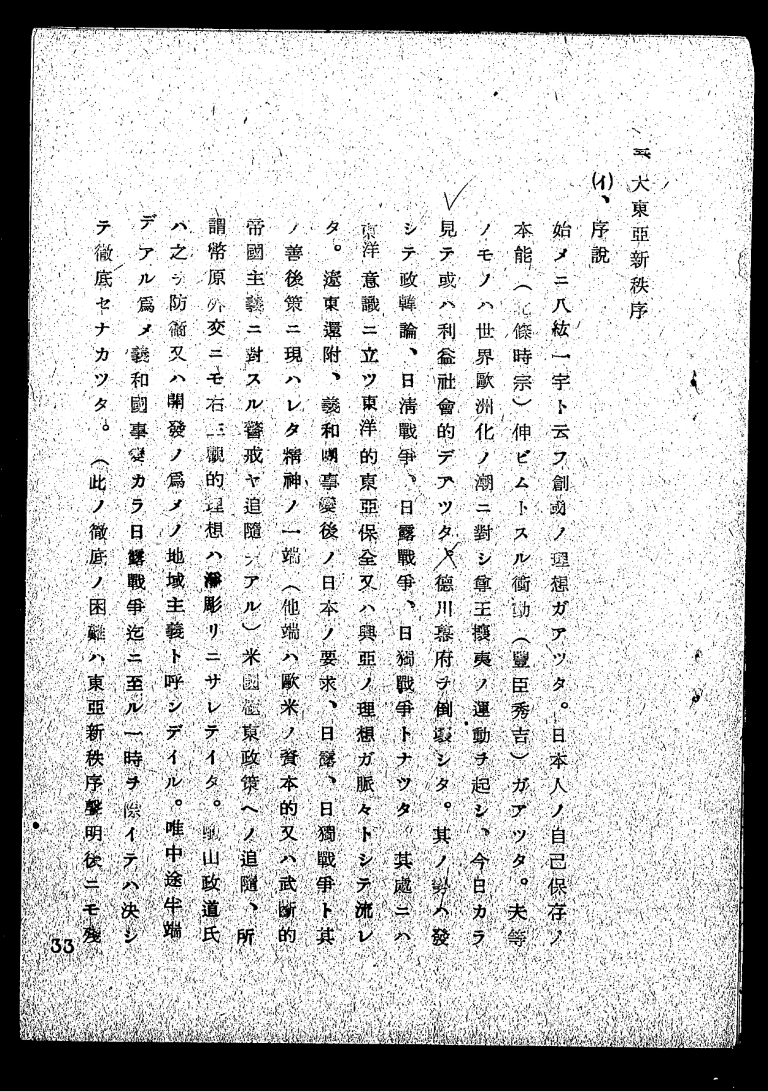 三、大東亞新秩序
(イ)、序說
始メニ八紘一宇ト云フ創或ノ理想ガアツタ。日本人ノ自己保存ノ
本能(北條時宗)伸ビムトスル衝動(豐臣秀吉)ガアツタ。夫等
ノモノハ世界歐洲化ノ潮ニ對シ尊王攘夷ノ運動ヲ起シ、今日カラ
見テ或ハ利益社會的デアツタ德川幕府ヲ倒壞シタ。其ノ勢ハ發
シテ政韓論、日淸戰爭、日露戰爭、日獨戰爭トナツタ。其處ニハ
東洋意識ニ立ツ東洋的東亞保全又ハ興亞ノ理想ガ脈々トシテ流レ
タ。遼東還附、義和團事變後ノ日本ノ要求、日露、日獨戰爭ト其
ノ善後策ニ現ハレタ精神ノ一端(他端ハ歐米ノ資本的又ハ武斷的
帝國主義ニ對スル警戒ヤ追隨デアル)米國極東政策ヘノ追隨、所
謂幣原外交ニモ右主觀的理想ハ浮彫リニサレテイタ。蠟山政道氏
ハ之ヲ防衞又ハ開發ノ爲メノ地域主義ト呼ンデイル。唯中途半端
デアル爲メ義和團事變カラ日露戰爭迄ニ至ル一時ヲ除イテハ決シ
テ徹底セナカツタ。(此ノ徹底ノ困難ハ東亞新秩序聲明後ニモ殘
33